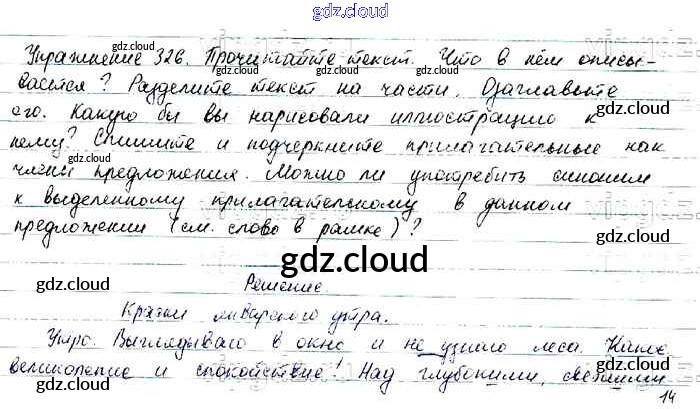 gdz.cloud
Упражнение 326. Прочитайте текст. Что в нём описы-
вается? Разделите текст на части. Озаглавьте
его. Какую бы вы нарисовали иллюстрацию к
нему? Спишите и подчеркните прилагательные как
члены предложения. Можно ли употребить синоним
к выделенному прилагательскому в данном
предложении (см. слово в рамке)?
gdz.cloud
Решение.
Краски январского утра.
Утро. Выглядываю в окно и не узнаю леса. Какое
великолепие и спокойствие! Над глубокими, свежими
14